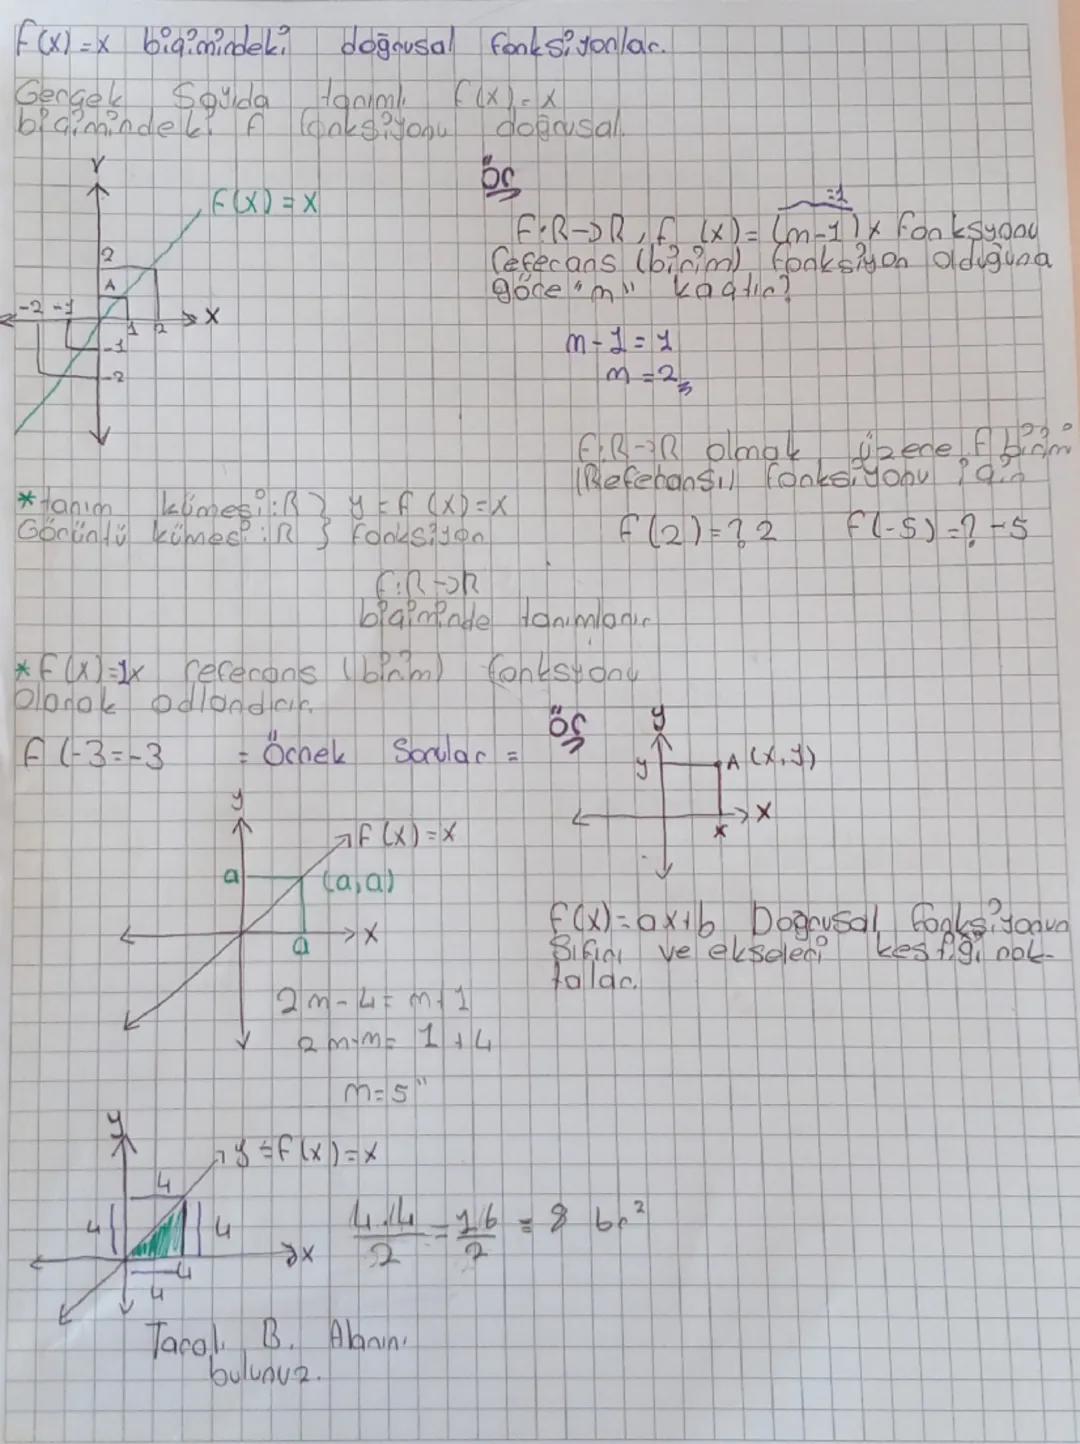 f(x)=x biçimindeki doğrusal fonksiyonlar.
Gerçek Sayıda tanımlı f(x)=x
biçimindeki f fonksiyonu doğrusal
Y
f(x)=x
2
A
-2 -1
1 2
X
-1
-2
Ör
=1
f:R→R, f (x)=(m-1)x fonksyonu
referans (birim) fonksiyon olduğuna
göre "m" kaçtır?
m-1=1
m=2
f:R→R olmak üzere f birim
(Referansı) fonksiyonu için
f(2)=? 2 f(-5)=? -5
*tanım kümesi:R } y=f(x)=x
Görüntü kümesi:R } fonksiyon
f:R→R
biçiminde tanımlanır
*f(x)=1x referans (birim) fonksyonu
olarak adlandırır.
f(-3=-3 = Örnek Sorular =
Ör
y
y
A(x,y)
x
X
y
f(x)=x
a
(a,a)
a
X
f(x)=ax+b Doğrusal fonksiyonun
Sıfırı ve ekseleri kestiği nok-
talar.
2m-4=m+1
2m-m=1+4
m=5"
y
y=f(x)=x
4
4
4
4
4
x
4.4/2=16/2=8 br²
Taralı B. Alanını
bulunuz.